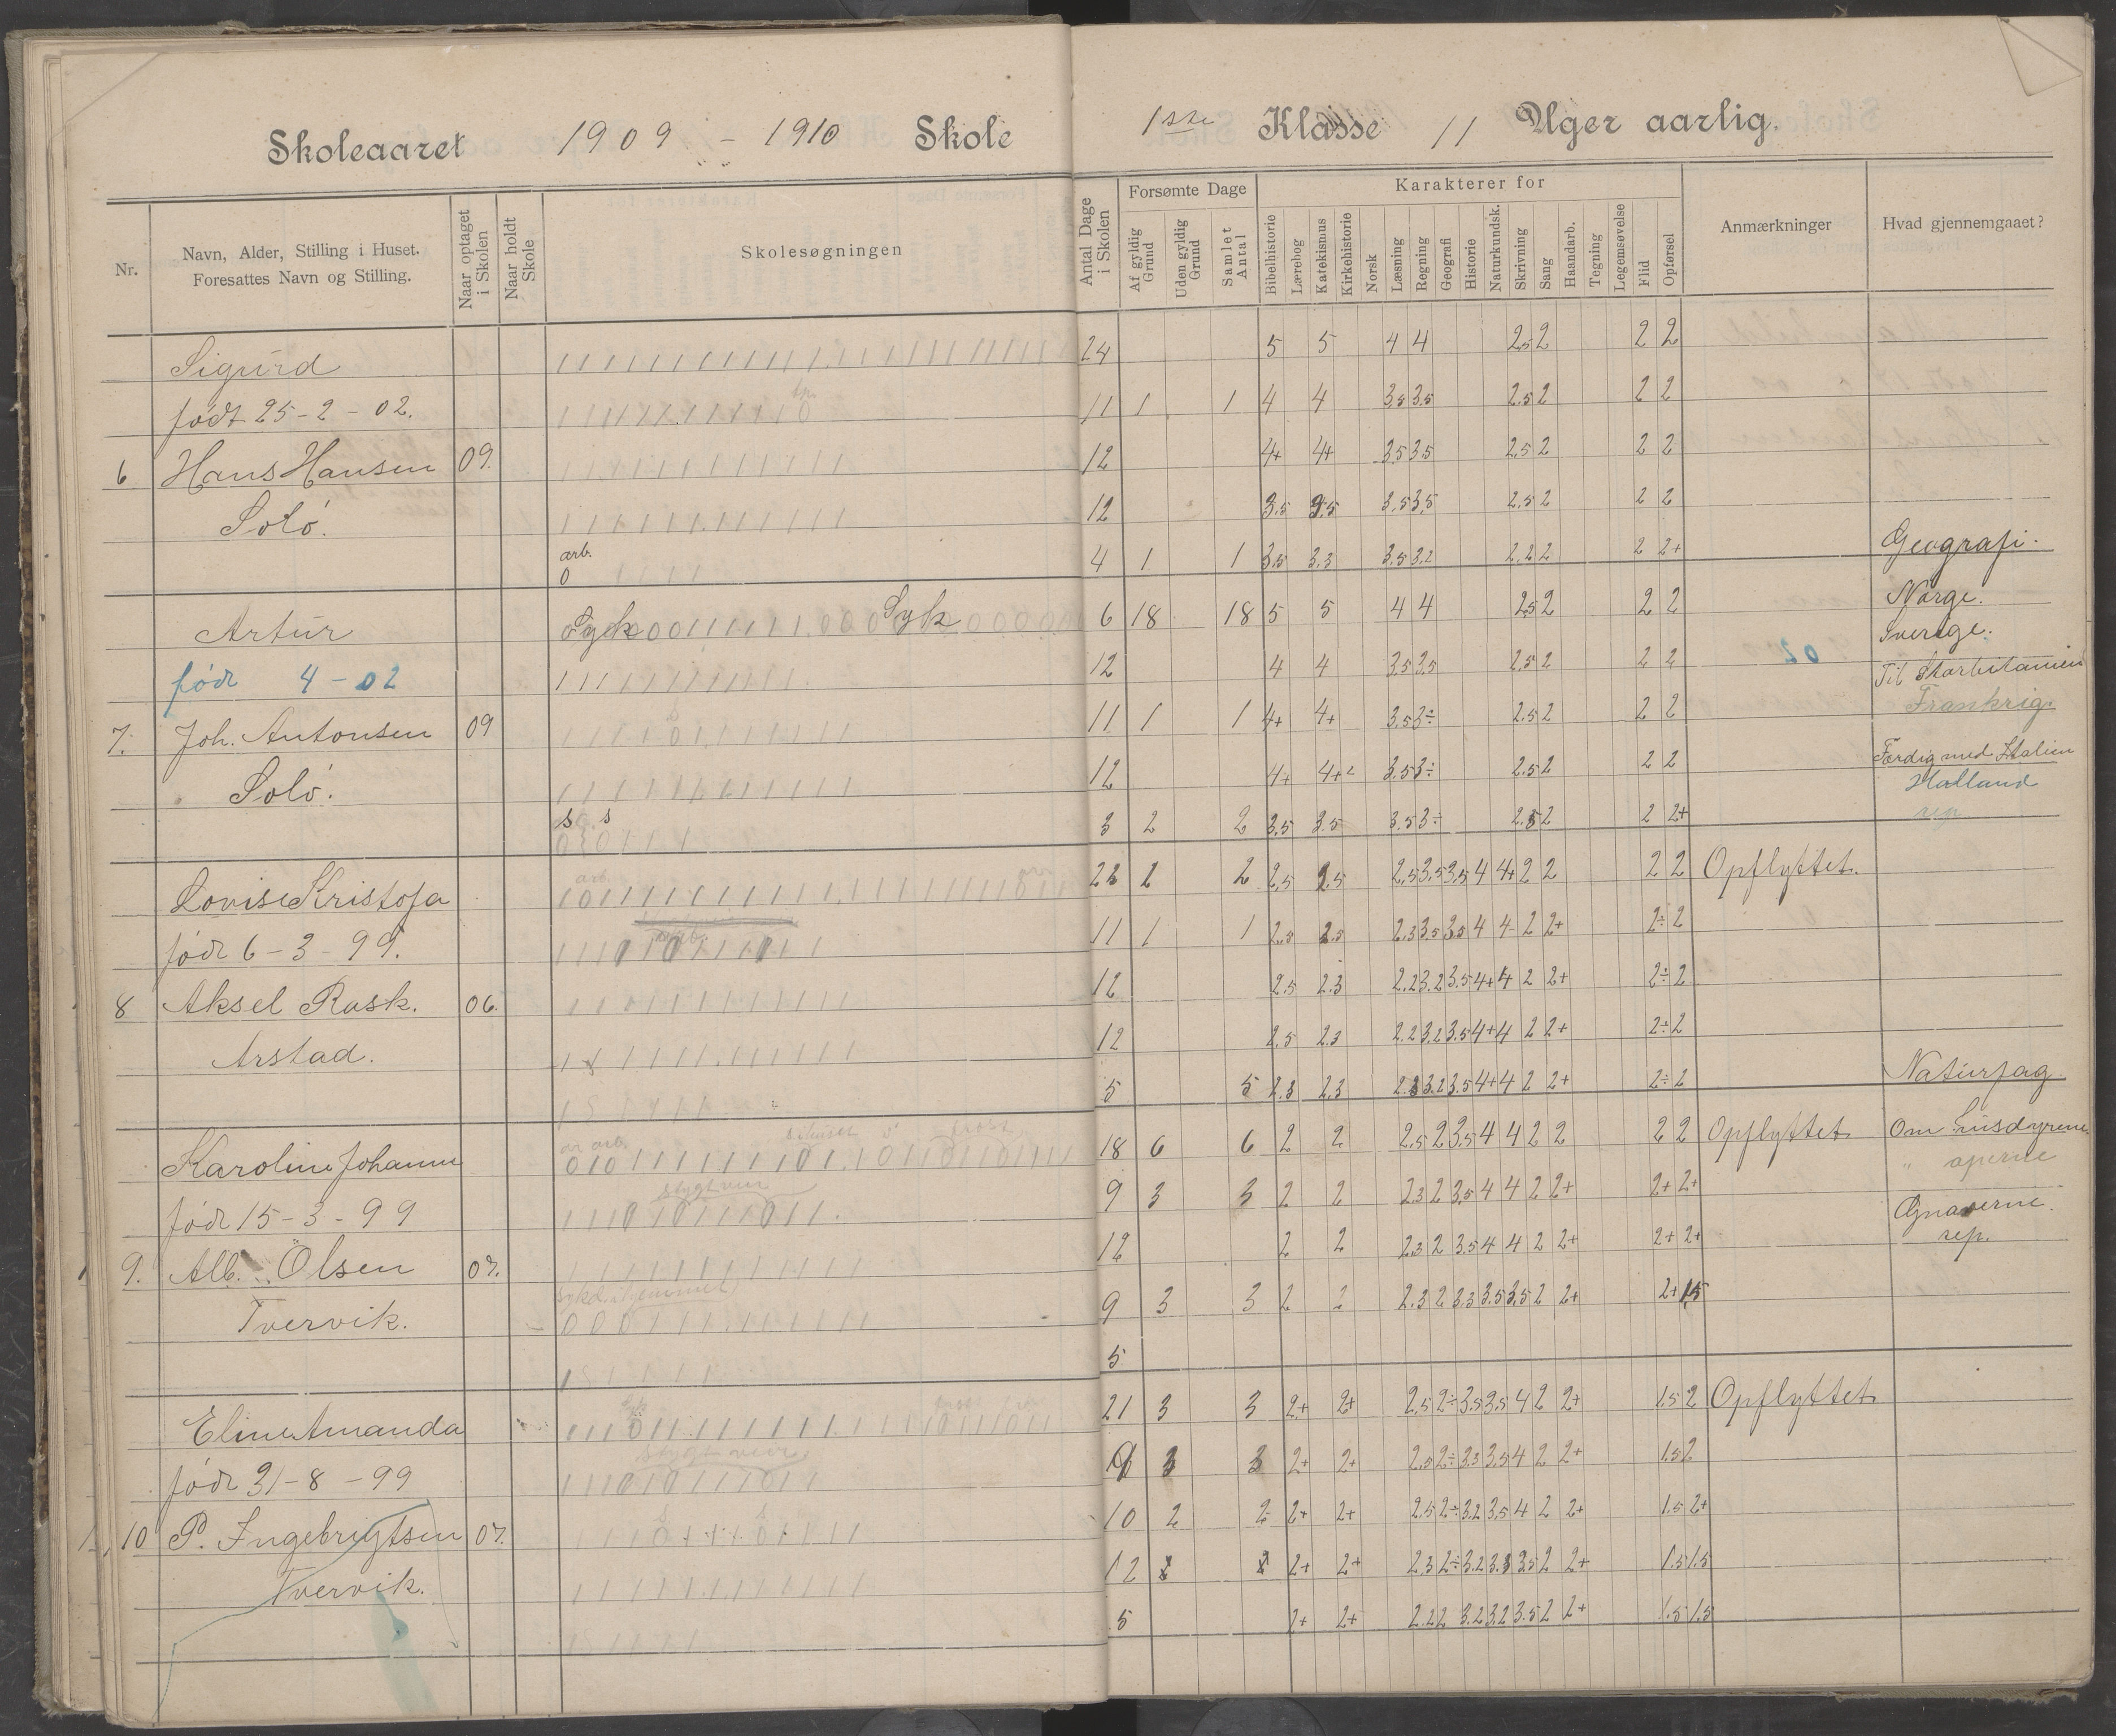 Skoleaaret 1909 – 1910 Skole
1ste Klasse 11 Uger aarlig.
Nr.
Navn, Alder, Stilling i Huset.
Foresattes Navn og Stilling.
Naar optaget i Skolen
Naar holdt Skole
Skolesøgningen
Antal Dage i Skolen
Forsømte Dage
Af gyldig Grund
Uden gyldig Grund
Samlet Antal
Karakterer for
Bibelhistorie
Lærebog
Katekismus
Kirkehistorie
Norsk
Læsning
Regning
Geografi
Historie
Naturkundsk.
Skrivning
Sang
Haandarb.
Tegning
Legemsøvelse
Flid
Opførsel
Anmærkninger
Hvad gjennemgaaet?
Sigurd 24 5 5 4 4 2.5 2 2 2
født 25-2-02. 11 1 1 4 4 3.5 3.5 2.5 2 2 2
6 Hans Hansen 09. 12 4+ 4+ 3.5 3.5 2.5 2 2 2
Solö. 12 3.5 3.5 3.5 3.5 2.5 2 2 2
arb. 4 1 1 3.5 3.3 3.5 3.2 2.2 2 2 2+ Geografi.
Artur Syk Syk 6 18 18 5 5 4 4 2.5 2 2 2 Norge.
Sverige.
død 4-02 12 4 4 3.5 3.5 2.5 2 2 2 Til Storbritanien
Frankrig.
7. Joh. Antonsen 09 11 1 1 4+ 4+ 3.5 3÷ 2.5 2 2 2
Solö. 12 4+ 4+ 3.5 3÷ 2.5 2 2 2 Færdig med Italien
Holland
s s 3 2 2 3.5 3.5 3.5 3÷ 2.5 2 2 2+ rep
Lovise Kristofa arb. 22 2 2 2.5 2.5 2.5 3.5 3.5 4 4+ 2 2 2 2 Opflyttet.
fød 6-3-99. 11 1 1 2.5 2.5 2.3 3.5 3.5 4 4 2 2+ 2÷ 2
8 Aksel Rask. 06. 12 2.5 2.3 2.2 3.2 3.5 4+ 4 2 2+ 2÷ 2
Arstad. 12 2.5 2.3 2.2 3.2 3.5 4+ 4 2 2+ 2÷ 2
5 5 2.3 2.3 2.3 3.2 3.5 4+ 4 2 2+ 2÷ 2 Naturfag.
Karoline Johanne arb. frost 18 6 6 2 2 2.5 2 3.5 4 4 2 2 2 2 Opflyttet Om husdyrene
" aperne
fød 15-3-99 stygt veir 9 3 3 2 2 2.3 2 3.5 4 4 2 2+ 2+ 2+
Gnaverne.
9. Alb. Olsen 07. 12 2 2 2.3 2 3.5 4 4 2 2+ 2+ 2+ rep.
Tvervik. 9 3 3 2 2 2.3 2 3.3 3.5 3.5 2 2+ 2+ 1.5
5
Eline Amanda Syk 21 3 3 2+ 2+ 2.5 2÷ 3.5 3.5 4 2 2+ 1.5 2 Opflyttet
fød 31-8-99 Stygt veir 9 3 3 2+ 2+ 2.5 2÷ 3.3 3.5 4 2 2+ 1.5 2
10 P. Ingebrigtsen 07. 10 2 2 2+ 2+ 2.5 2÷ 3.2 3.5 4 2 2+ 1.5 2+
Tvervik. 12 2+ 2+ 2.3 2÷ 3.2 3.3 3.5 2 2+ 1.5 1.5
5 2+ 2+ 2.2 2 3.2 3.2 3.5 2 2+ 1.5 1.5